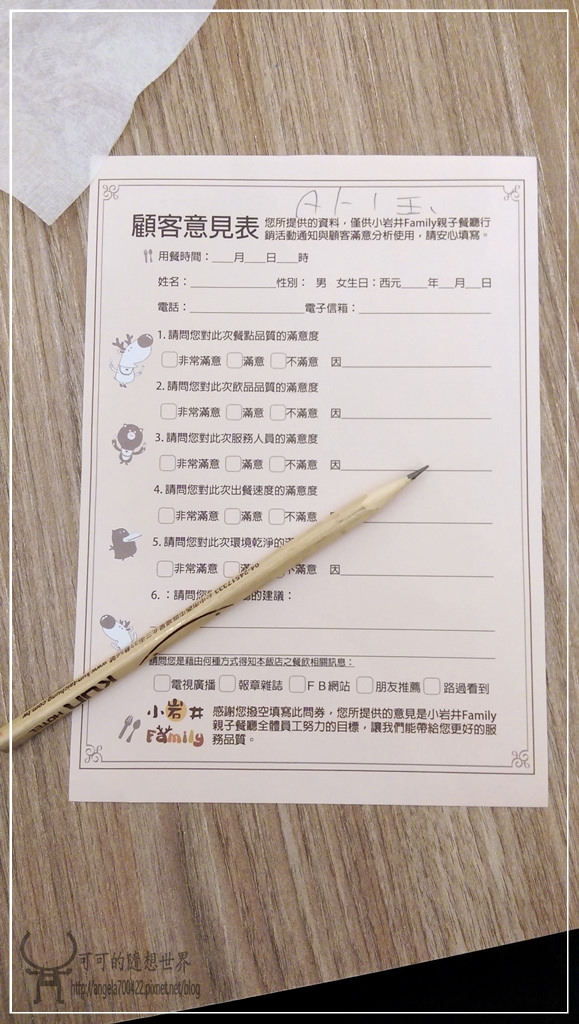 顧客意見表
您所提供的資料，僅供小岩井Family親子餐廳行
銷活動通知與顧客滿意分析使用，請安心填寫。
用餐時間：___月___日___時
姓名：____________性別： 男 女生日：西元____年__月__日
電話：________________電子信箱：__________________
1. 請問您對此次餐點品質的滿意度
非常滿意 滿意 不滿意 因____________________
2. 請問您對此次飲品品質的滿意度
非常滿意 滿意 不滿意 因____________________
3. 請問您對此次服務人員的滿意度
非常滿意 滿意 不滿意 因____________________
4. 請問您對此次出餐速度的滿意度
非常滿意 滿意 不滿意
5. 請問您對此次環境乾淨的
非常滿意 滿意 不滿意 因____________________
6. ：請問您 的建議：
請問您是藉由何種方式得知本飯店之餐飲相關訊息：
電視廣播 報章雜誌 ＦＢ網站 朋友推薦 路過看到
小岩井
Family
感謝您撥空填寫此問券，您所提供的意見是小岩井Family
親子餐廳全體員工努力的目標，讓我們能帶給您更好的服
務品質。
KUN HOTEL
可可的隨想世界
http://angela700422.pixnet.net/blog